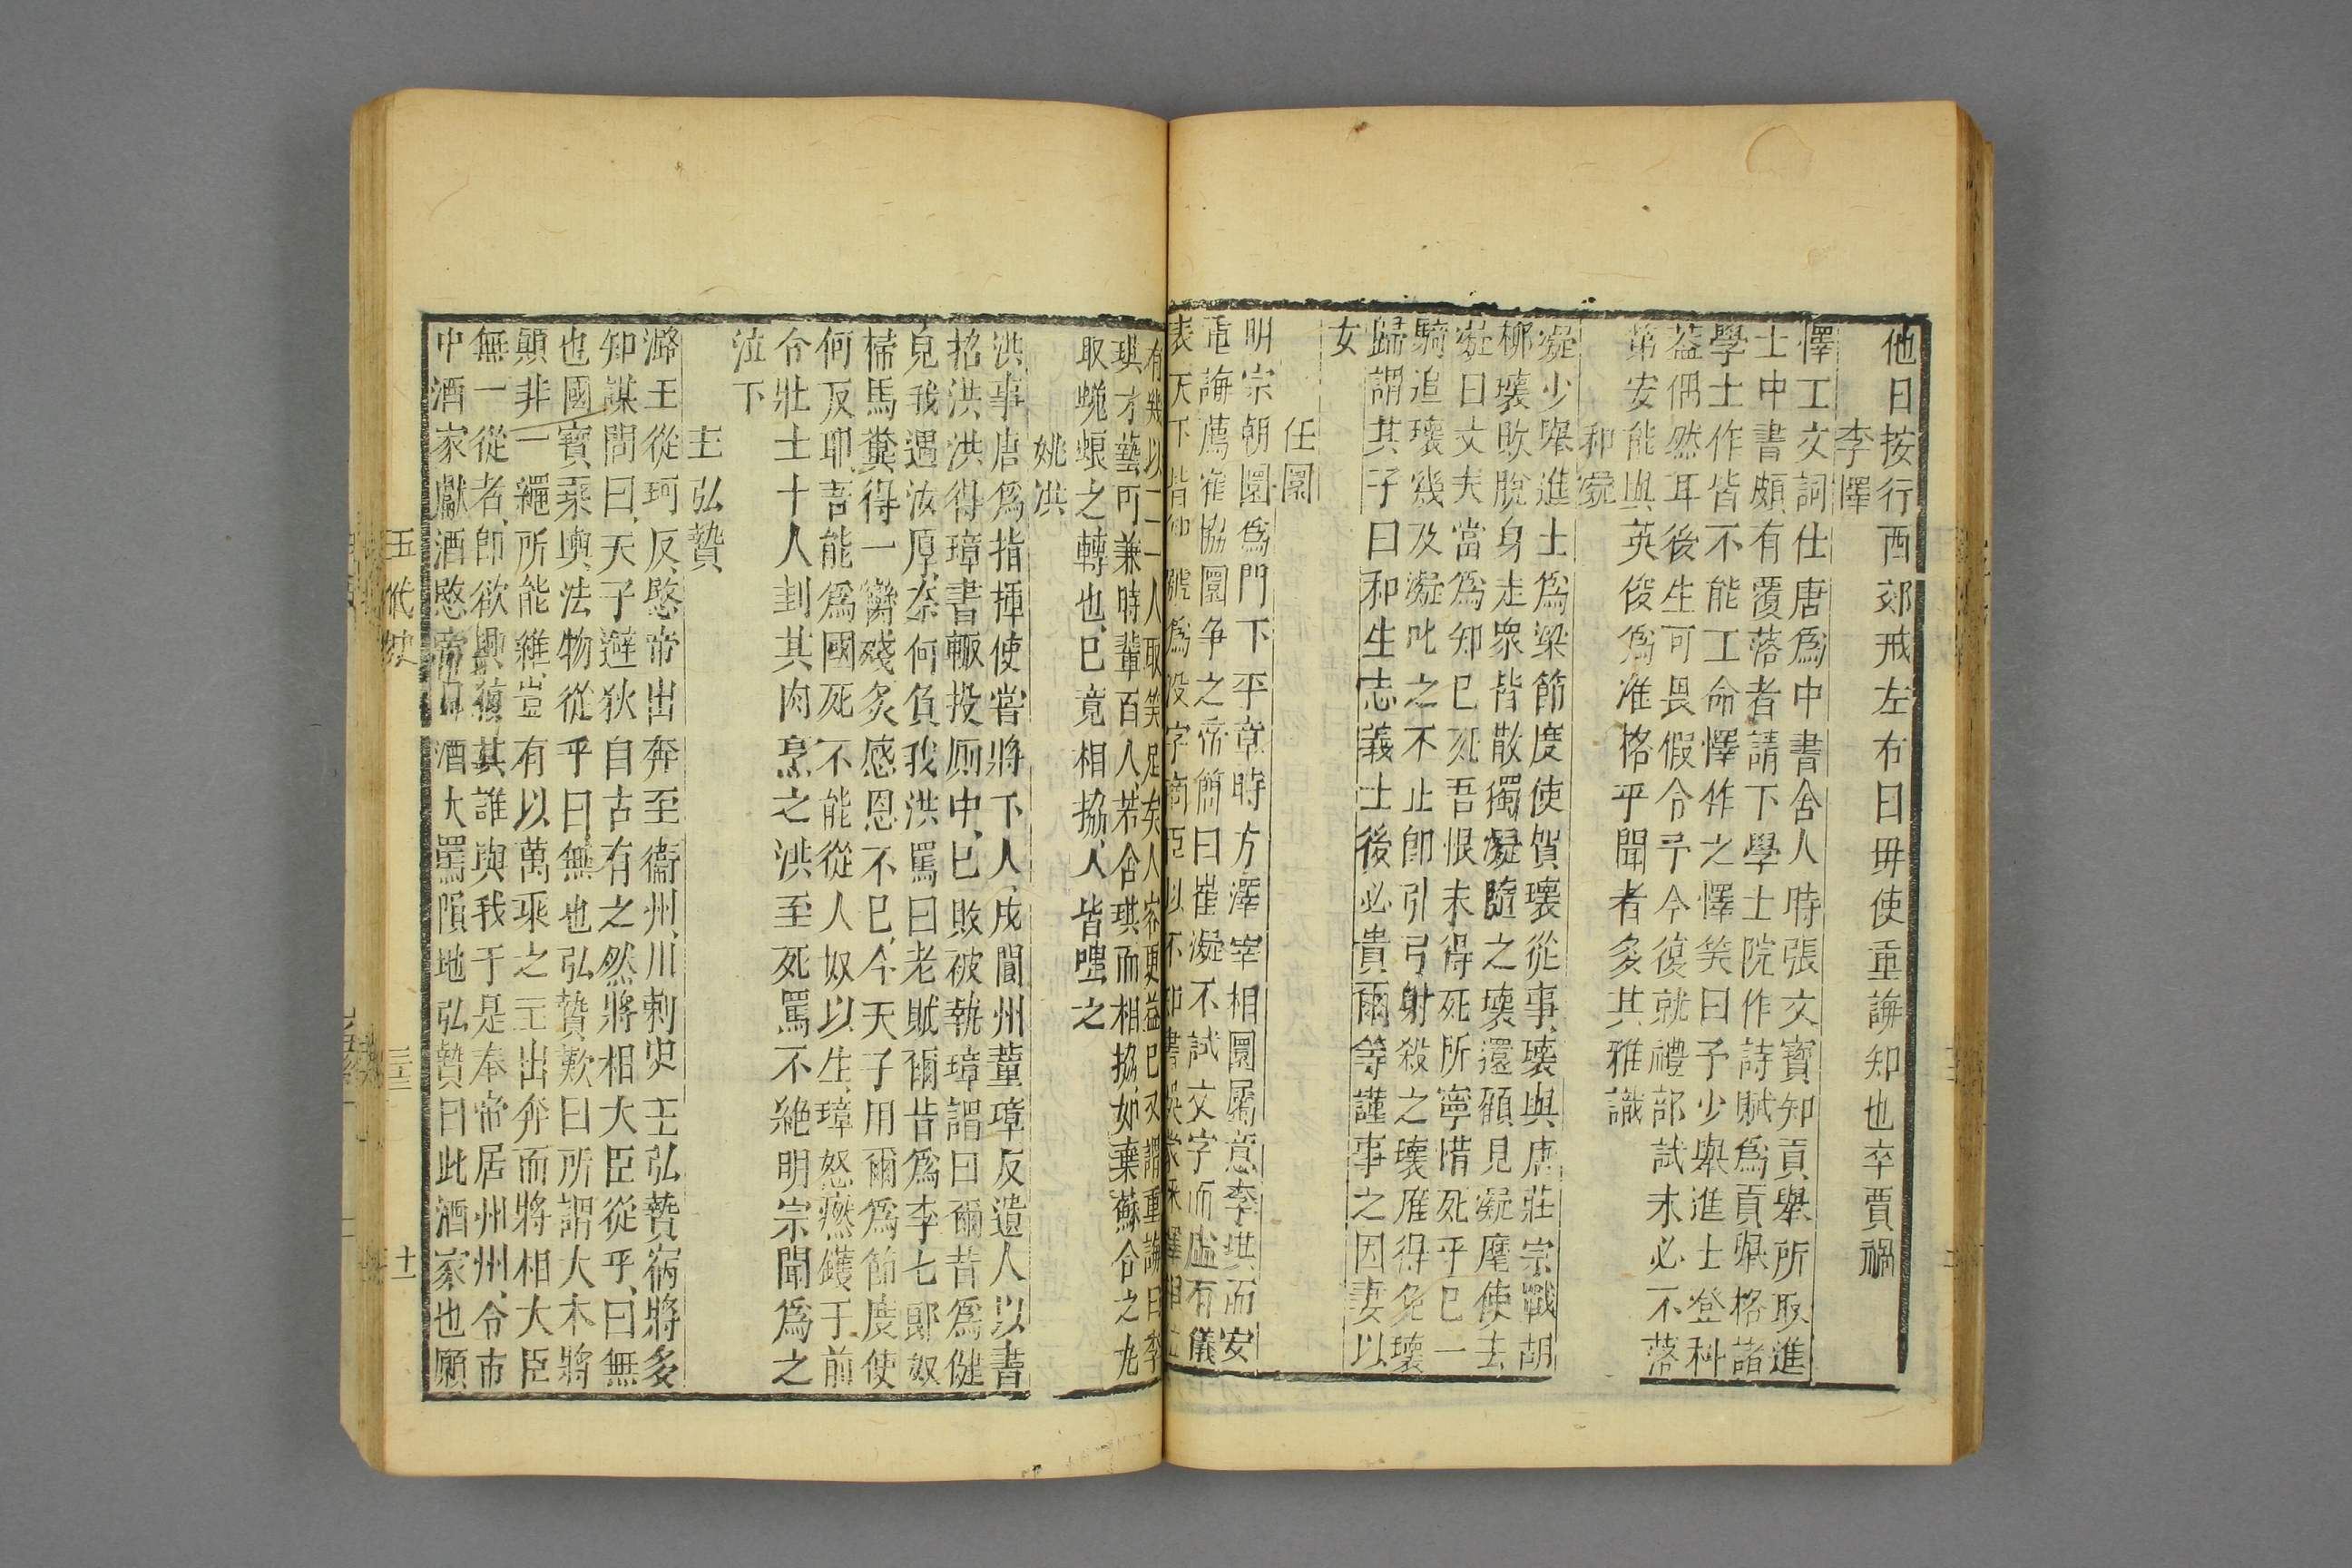 他日按行西郊戒左右曰毋使重誨知也卒賈禍
李懌
懌工文詞仕唐為中書舍人時張文寶知貢舉所取進
士中書頗有覆落者請下學士院作詩賦為貢舉格諸
學士作皆不能工命懌作之懌笑曰予少舉進士登科
葢偶然耳後生可畏假令予今復就禮部試未必不落
第安能與英俊為准格乎聞者多其雅識
和凝
凝少舉進士為梁節度使賀瓌從事瓌與唐莊宗戰胡
柳瓌敗脫身走眾皆散獨凝隨之瓌還顧見凝麾使去
凝曰丈夫當為知己死吾恨未得死所寧惜死乎已一
騎追瓌幾及凝叱之不止即引弓射殺之瓌雁得免瓌
歸謂其子曰和生志義士後必貴爾等謹事之因妻以
女
任圜
明宗朝圜為門下平章時方擇宰相圜屬意李琪而安
重誨薦崔協圜爭之帝簡曰崔凝不試文字而虛有儀
表天下皆
有幾以一二人取笑足矣人家更益已又謂重誨曰李
琪才藝可兼時輩百人若舍琪而相協如棄蘇合之丸
取蜣蜋之轉也已竟相協人皆嗤之
姚洪
洪事唐為指揮使嘗將下人戍閬州董璋反遣人以書
招洪洪得璋書輒投厠中已敗被執璋謂曰爾昔為健
兒我遇汝厚奈何負我洪罵曰老賊爾昔為李七郎奴
掃馬糞得一臠殘炙感恩不已今天子用爾為節度使
何反耶吾能為國死不能從人奴以生璋怒燃鑊于前
令壯士十人刲其肉烹之洪至死罵不絶明宗聞為之
泣下
王弘贄
潞王從珂反愍帝出奔至衞州州刺史王弘贄宿將多
知謀問曰天子避狄自古有之然將相大臣從乎曰無
也國寶乘輿法物從乎曰無也弘贄歎曰所謂大木將
顛非一繩所能維豈有以萬乘之王出奔而將相大臣
無一從者即欲興復其誰與我于是奉帝居州州令市
中酒家獻酒愍帝曰酒大罵隕地弘贄曰此酒家也願
五代史
三十三
十一